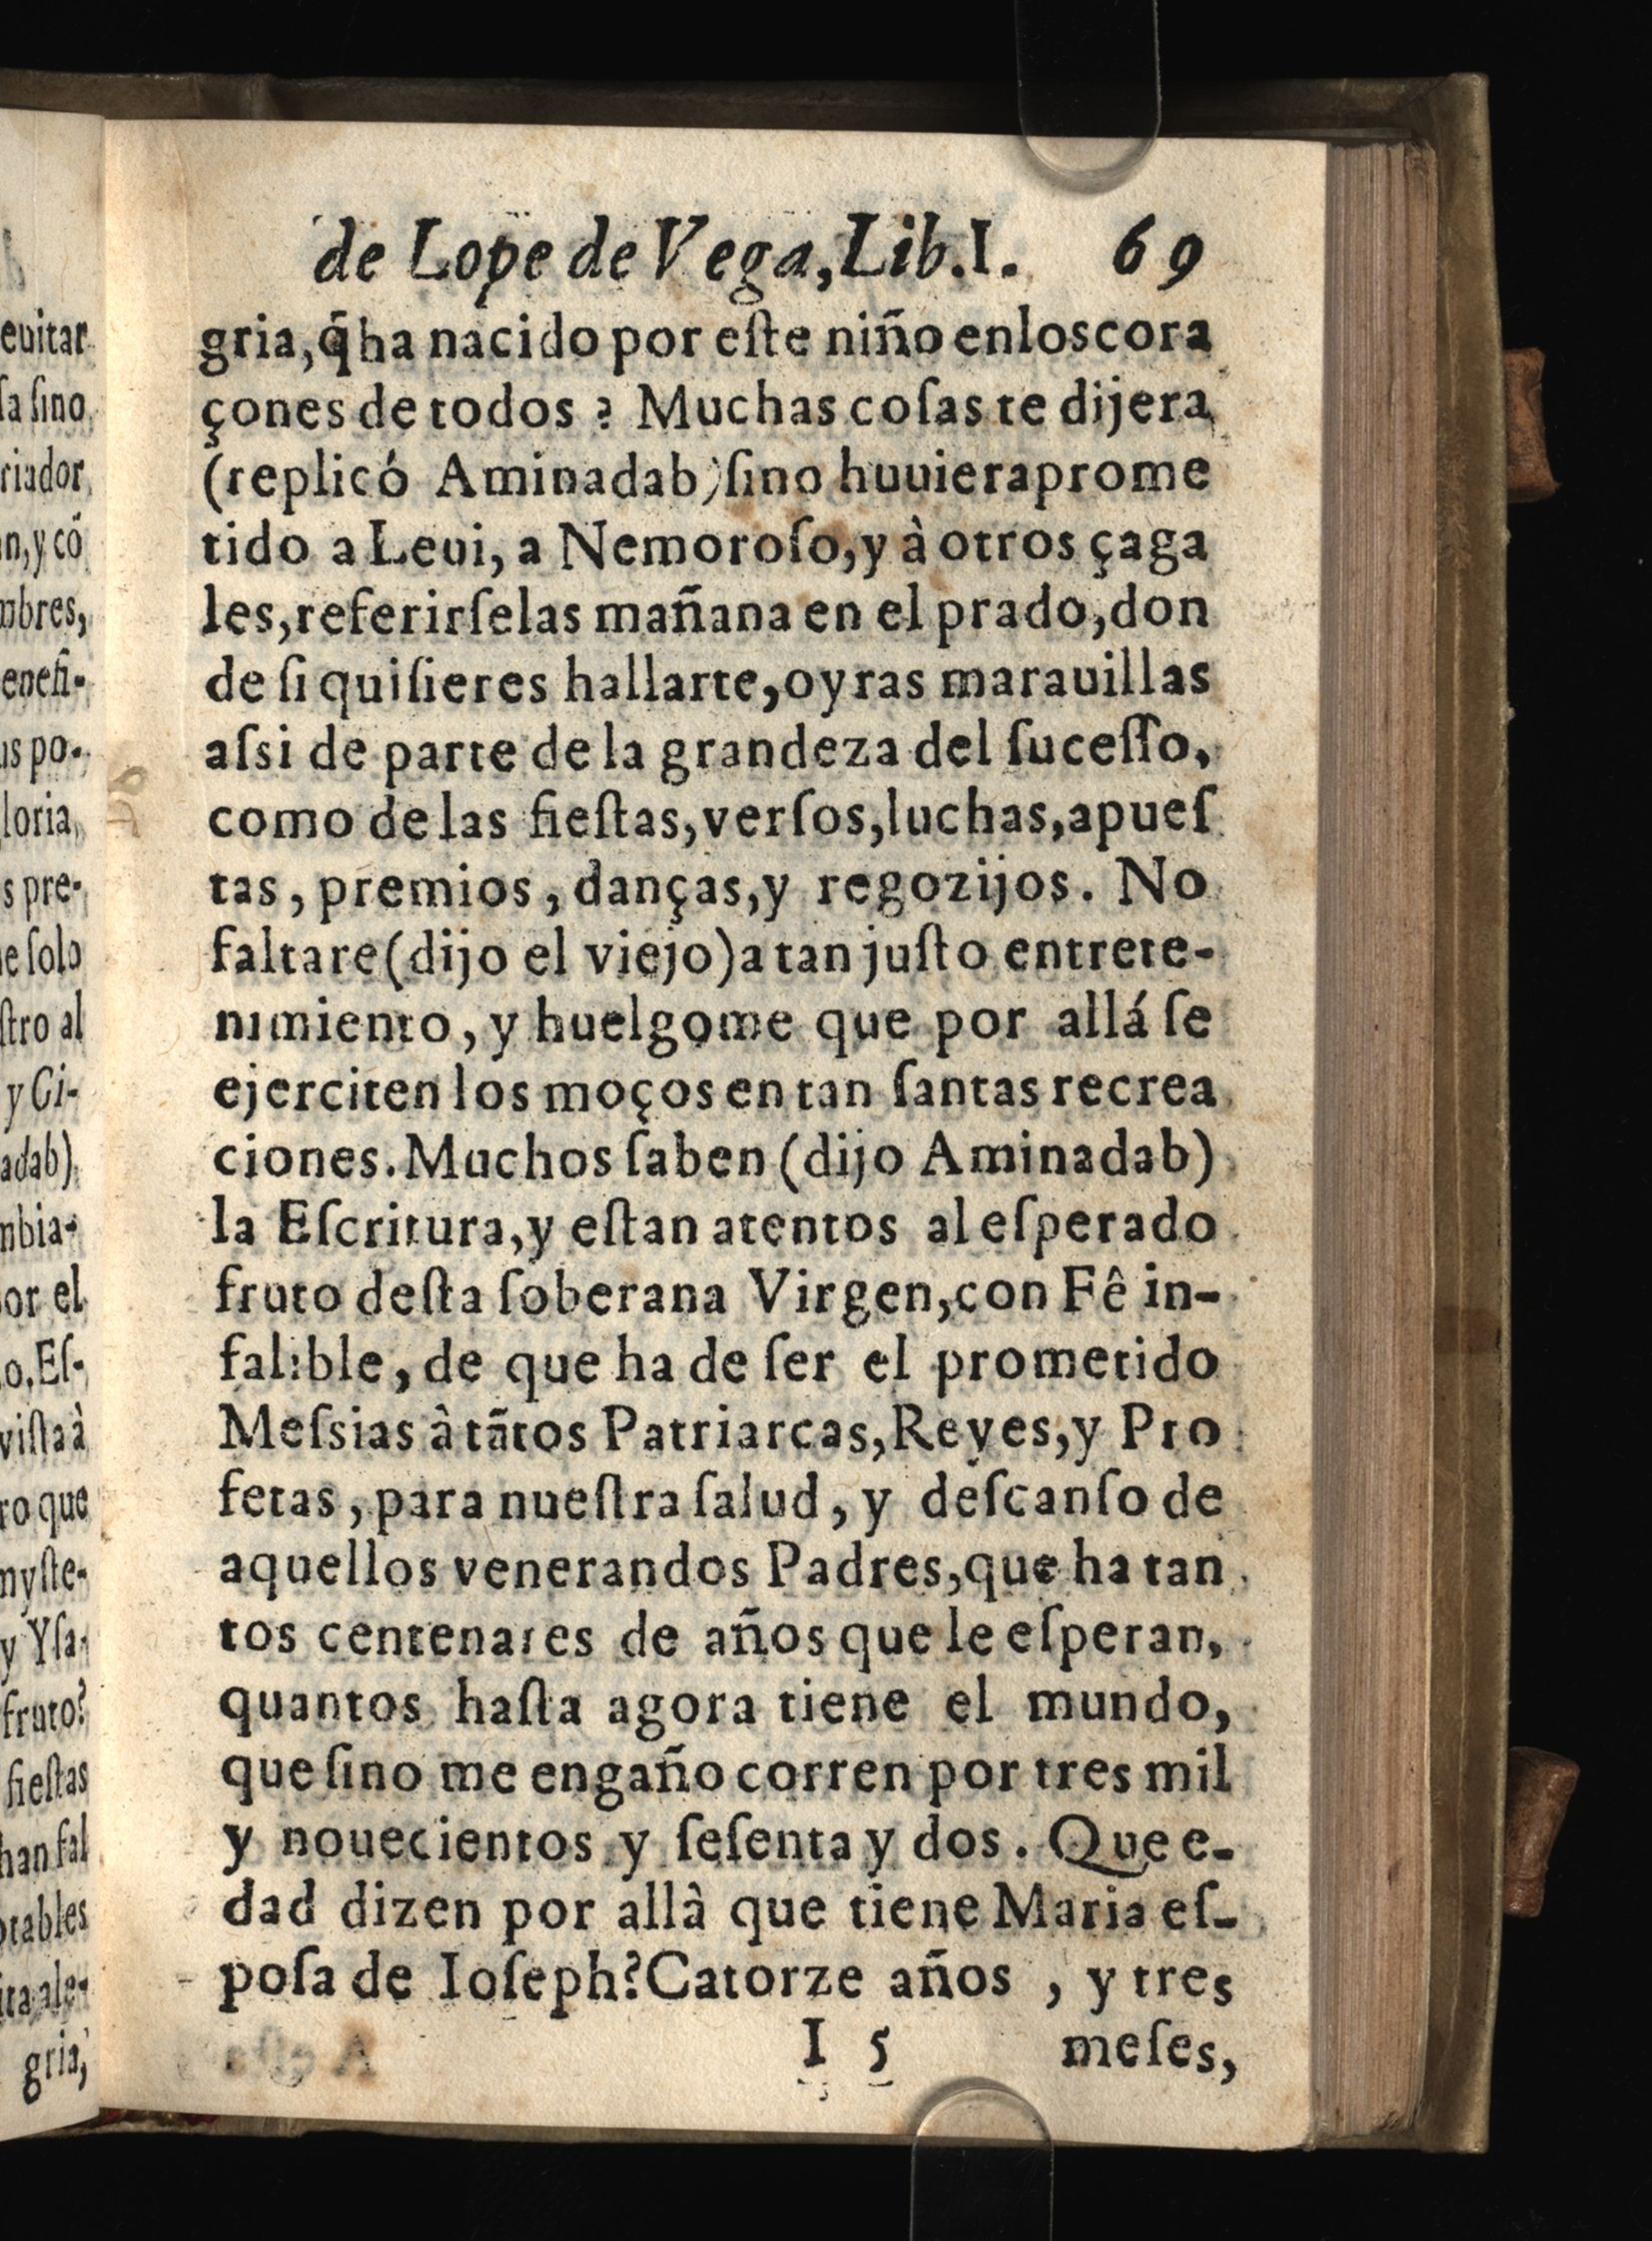 de Lope de Vega, Lib.I. 69
gria, q̃ ha nacido por eſte niño en los cora
çones de todos? Muchas coſas te dijera
(replicó Aminadab) ſino huuiera prome
tido a Leui, a Nemoroſo, y à otros çaga
les, referirſelas mañana en el prado, don
de ſi quiſieres hallarte, oyras marauillas
aſsi de parte de la grandeza del ſuceſſo,
como de las fieſtas, verſos, luchas, apueſ
tas, premios, danças, y regozijos. No
faltare (dijo el viejo) a tan juſto entrete-
nimiento, y huelgome que por allá ſe
ejerciten los moços en tan ſantas recrea
ciones. Muchos ſaben (dijo Aminadab)
la Eſcritura, y eſtan atentos al eſperado
fruto deſta ſoberana Virgen, con Fê in-
falible, de que ha de ſer el prometido
Meſsias â tãtos Patriarcas, Reyes, y Pro
fetas, para nueſtra ſalud, y deſcanſo de
aquellos venerandos Padres, que ha tan
tos centenares de años que le eſperan,
quantos haſta agora tiene el mundo,
que ſino me engaño corren por tres mil
y nouecientos y ſeſenta y dos. Que e-
dad dizen por allà que tiene Maria eſ-
poſa de Ioſeph? Catorze años, y tres
I 5 meſes,
euitar
ſa ſino
riador
n, y cõ
mbres,
enefi-
us po-
loria,
s pre-
e ſolo
ſtro al
y Gi-
adab)
mbia-
or el
o. Eſ-
viſta à
ro que
myſte-
y Yſa-
fruto?
fieſtas
han fal
otables
ita ale-
gria,